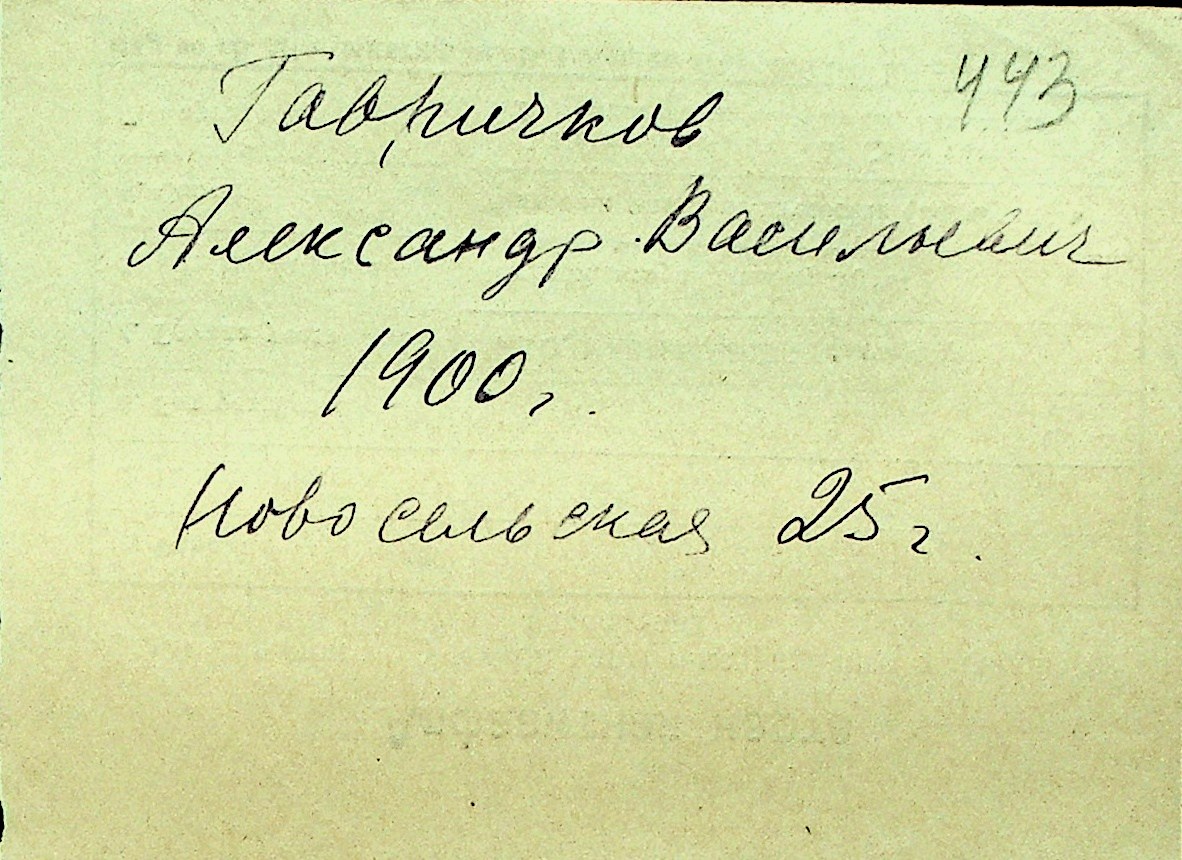 443
Гавричков
Александр Васильевич
1900г.
Новосельская 25г.